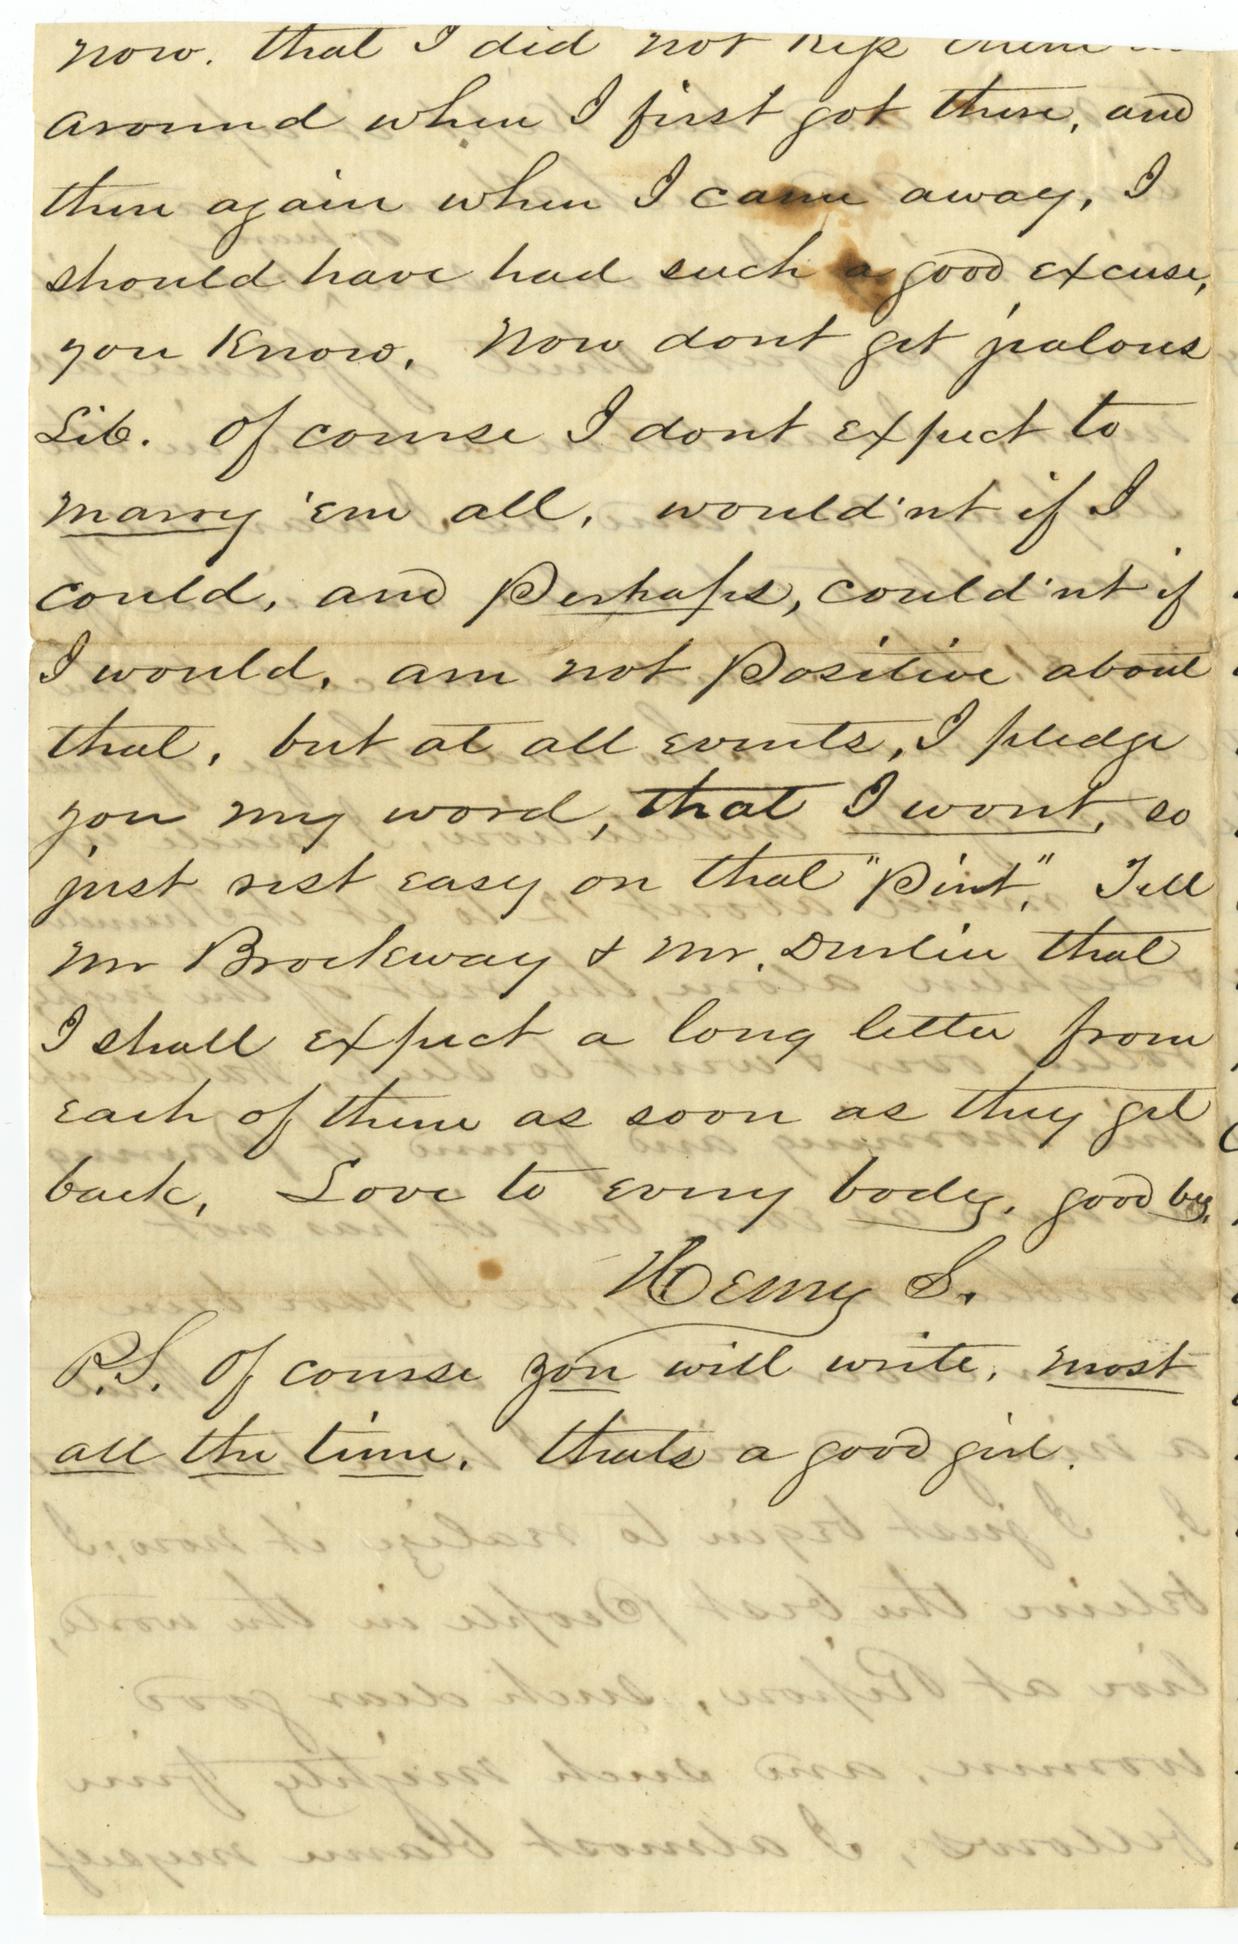 now. that I did not Kiss them all
around when I first got there, and
then again when I came away, I
should have had such a good excuse,
you Know. Now dont get jealous
Lib. Of course I dont expect to
marry 'em all, would'nt if I
could, and Perhaps, could'nt if
I would, am not Positive about
that, but at all events, I pledge
you my word, that I wont, so
just rest easy on that "Pint". Tell
Mr Brockway & Mr. Durlin that
I shall expect a long letter from
each of them as soon as they get
back, Love to every body. good by.
Henry S.
P.S. Of course you will write, most
all the time. thats a good girl.